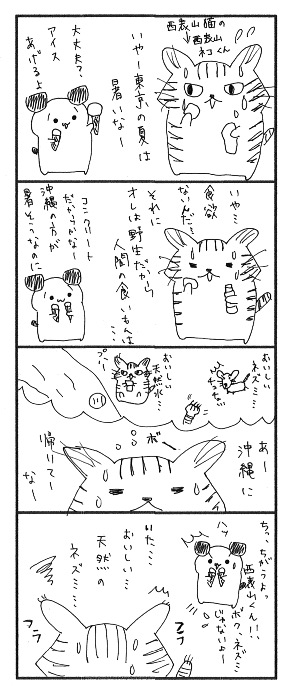 西表山猫の
西表山
ネコくん
いやー東京の夏は
暑いなー
大丈夫?
アイス
あげるよ
いや…
食欲
ないんだ…
それに
オレは野生だから
人間の食いもんは
……
コンクリート
だからかなー
沖縄の方が
暑そうなのに
おいしい
ネズミ…
おいしい
天然水…
プハー
あー
沖縄に
ボー
帰りてー
なー
ちっ、ちがうよっ
西表山くん!!
ボク、ネズミ
じゃないよー
ハッ
いた…
おいしい…
天然の
ネズミ……
フラ
フラ